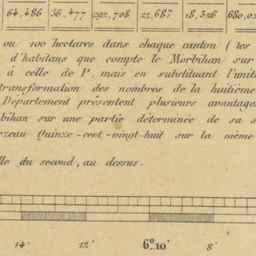 64,486 56,477 292,708 22,687 18,326 680,0
ou 100 hectares dans chaque canton ( les
d'habitans que compte le Morbihan sur
à celle de 1°, mais en substituant l'unit
transformation des nombres de la huitième
Département présentent plusieurs avantage
bihan sur une partie déterminée de sa s
zeau Quinze-cent-vingt-huit sur la même
lle du second, au dessus.
14' 12' 6°10' 8'